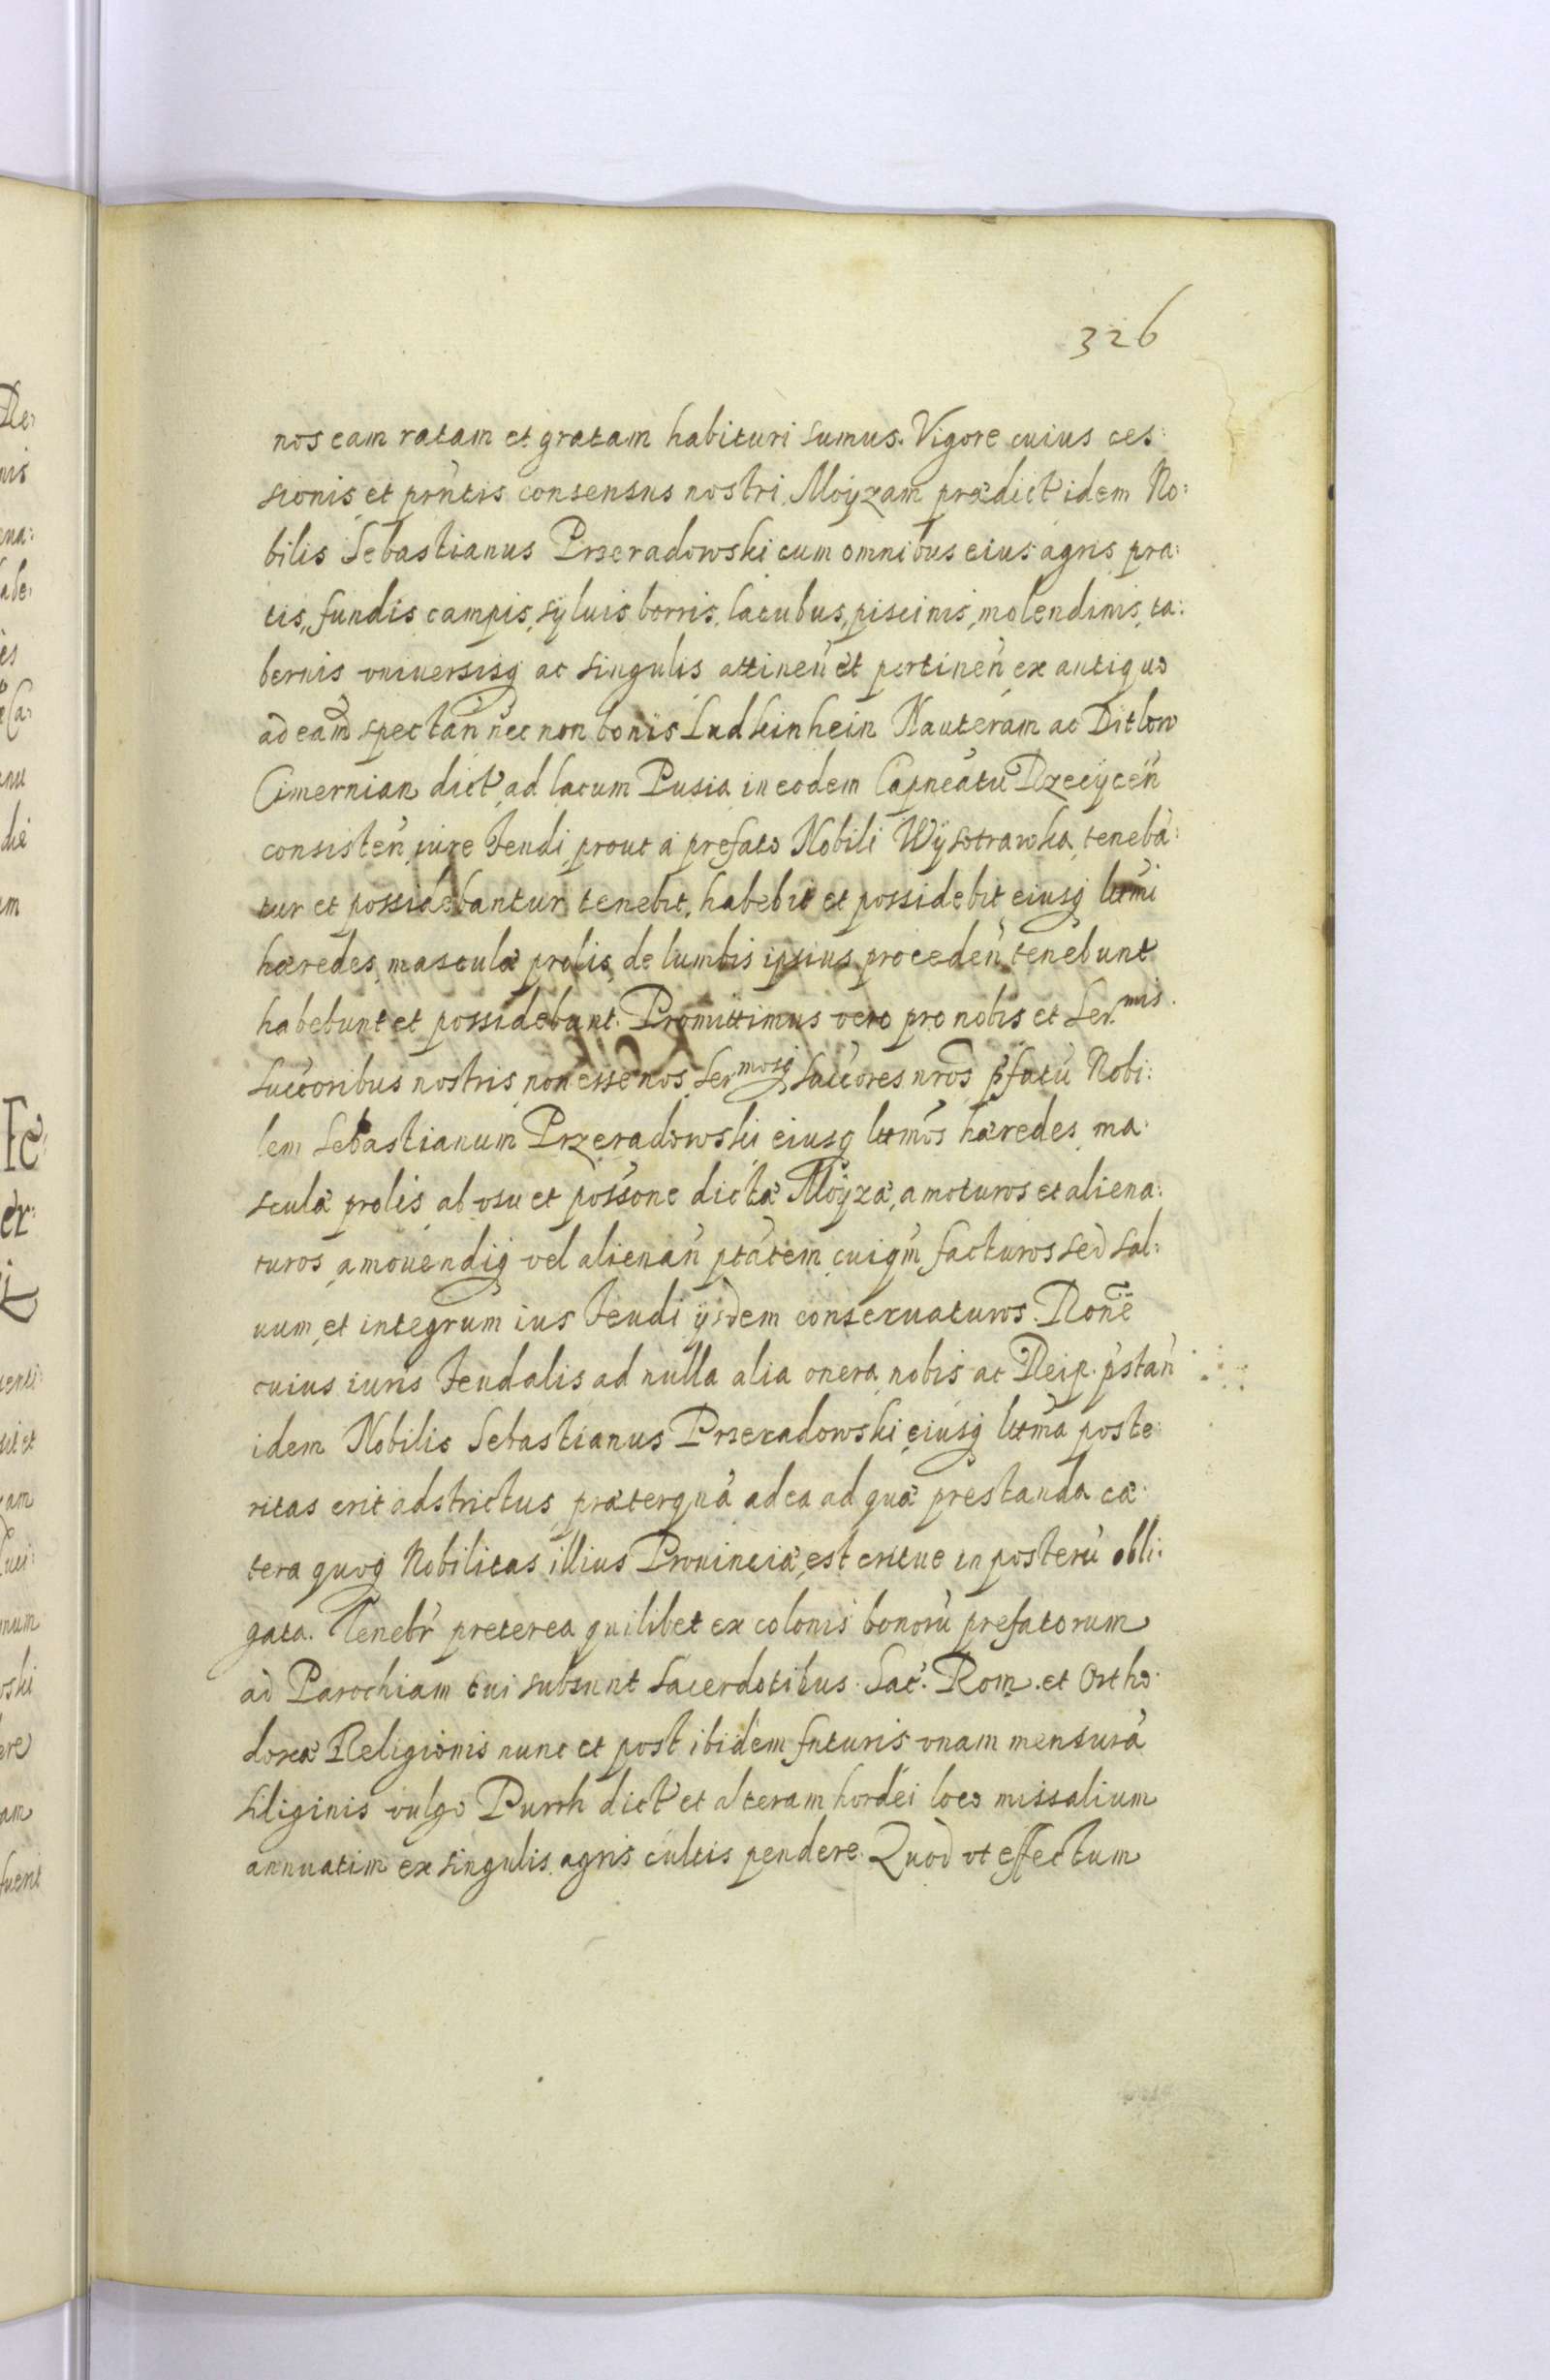 326
nos eam ratam et gratam habituri sumus. Vigore cuius ces:
sionis et prńtis consensus nostri Moÿzam prædict idem No:
bilis Sebastianus Przeradowski cum omnibus eius agris pra:
tis, fundis campis, sÿluis borris, lacubus, piscinis, molendinis, ta:
bernis vniuersisq ac singulis attineń et pertineń ex antiquo
ad eam̃ spectań nec non bonis Ludkinhein Nauteram ac Ditlow
Cimernian dict ad lacum Pusia in eodem Capneatu Rzecÿceń
consisteń iure feudi prout a prefato Nobili Wÿsotrawka teneba:
tur et possidebantur tenebit, habebit et possidebit eiusq lttmi
hæredes masculæ prolis de lumbis ipsius procedeń tenebunt
habebunt et possidebunt. Promittimus vero pro nobis et Ser.mis
succoribus nostris non esse nos Sermosq succores nros pfatu Nobi:
lem Sebastianum Przeradowski eiusq lttmos hæredes ma:
sculæ prolis ab vsu et possone dictæ Moÿzæ, amoturos et aliena:
turos, amouendiq vel alienań ptatem cuiqm facturos sed sal:
uum et integrum ius feudi ÿsdem conseruaturos. Rone
cuius iuris feudalis ad nulla alia onera nobis ac Reip. pstań
idem Nobilis Sebastianus Przeradowski eiusq lttma poste:
ritas erit adstrictus præterqua ad ea ad quæ prestanda cæ:
tera quoq Nobilitas illius Prouinciæ est eritue in posteru obli:
gata. Tenebr preterea quilibet ex colonis bonoru prefatorum
ad Parochiam cui subsunt Sacerdotibus Sac. Rom. et Ortho:
doxæ Religionis nunc et post ibidem futuris vnam mensura
siliginis vulgo Purrh dict et alteram hordei loco missalium
annuatim ex singulis agris cultis pendere. Quod vt effectum